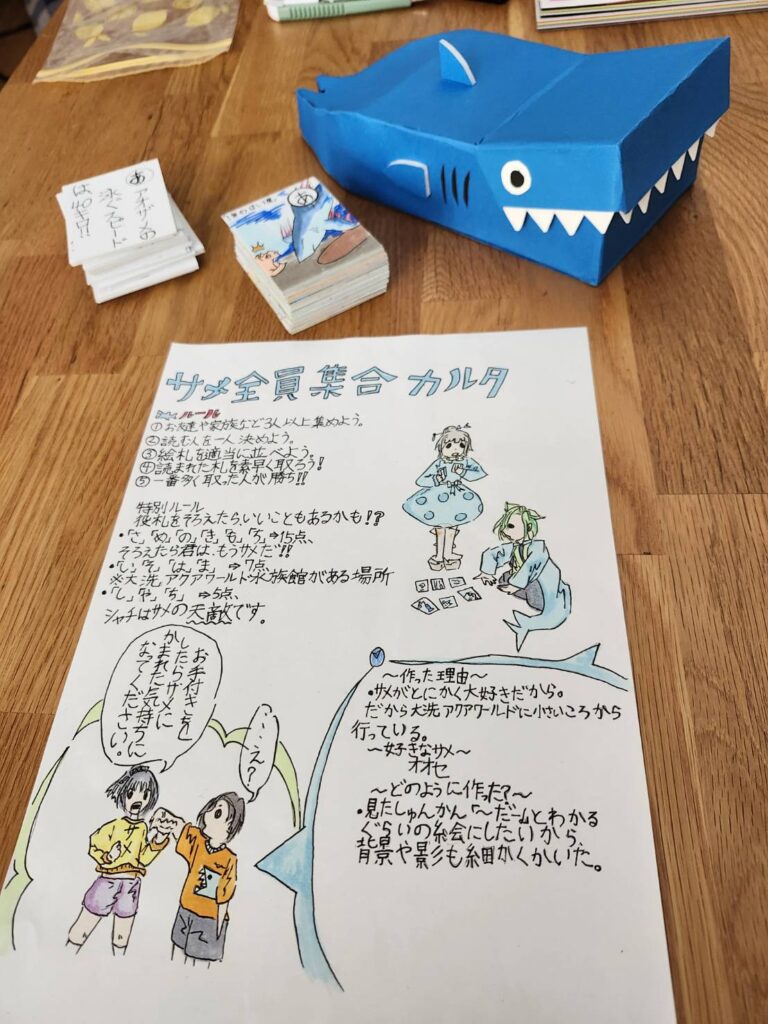 あ
アオザメの
泳ぐスピード
は40キロ!!
あ
サメ全員集合 カルタ
ルール
①お友達や家族など3人以上集めよう。
②読む人を一人決めよう。
③絵札を適当に並べよう。
④読まれた札を素早く取ろう!
⑤一番多く取った人が勝ち!!
特別ルール
役札をそろえたら、いいこともあるかも!?
・「さ」「め」「の」「き」「も」「ち」⇒15点、
そろえたら君は、もうサメだ!!
・「い」「そ」「は」「ま」 ⇒7点、
※大洗アクアワールド水族館がある場所
・「し」「や」「ち」 ⇒5点、
シャチはサメの天敵です。
お手付きを
したらサメに
かまれた気持ちに
なってください。
・・・え?
サメ
〜作った理由〜
・サメがとにかく大好きだから。
だから大洗アクアワールドに小さいころから
行っている。
〜好きなサメ〜
オオセ
〜どのように作った?〜
・見たしゅんかん「〜だ―」とわかる
ぐらいの絵にしたいから、
背景や影も細かくかいた。